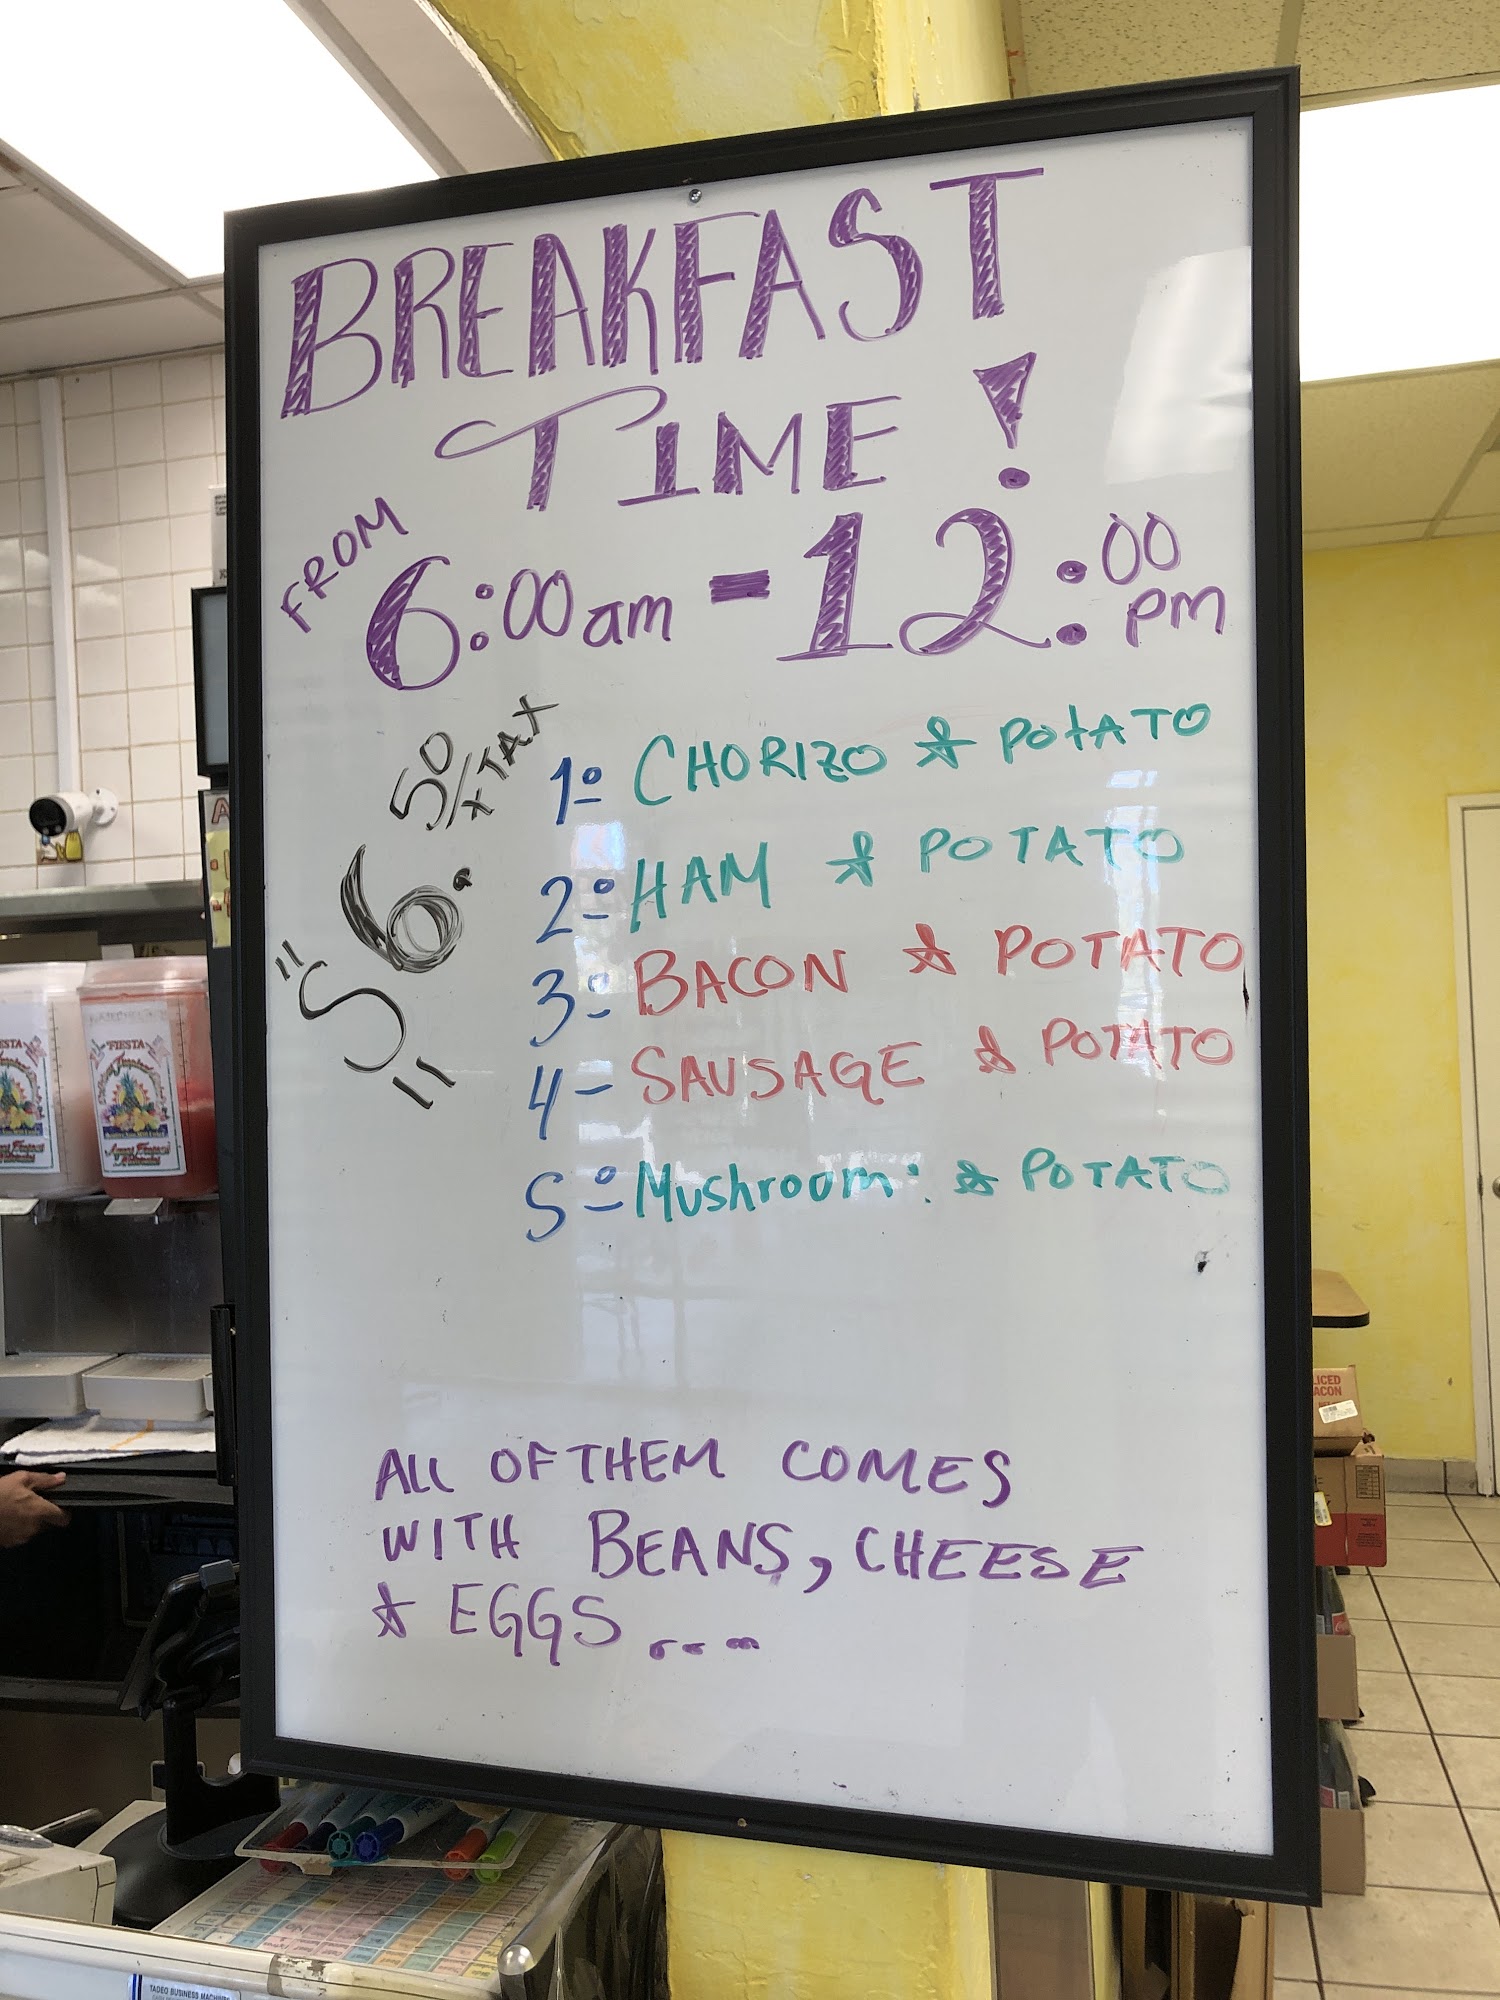 BREAKFAST
TIME!
FROM
6:00am - 12:00pm
$6.50/+TAX
1º CHORIZO & POTATO
2º HAM & POTATO
3º BACON & POTATO
4- SAUSAGE & POTATO
5º Mushroom: & POTATO
ALL OF THEM COMES
WITH BEANS, CHEESE
& EGGS...
FIESTA
TADEO BUSINESS MACHINES